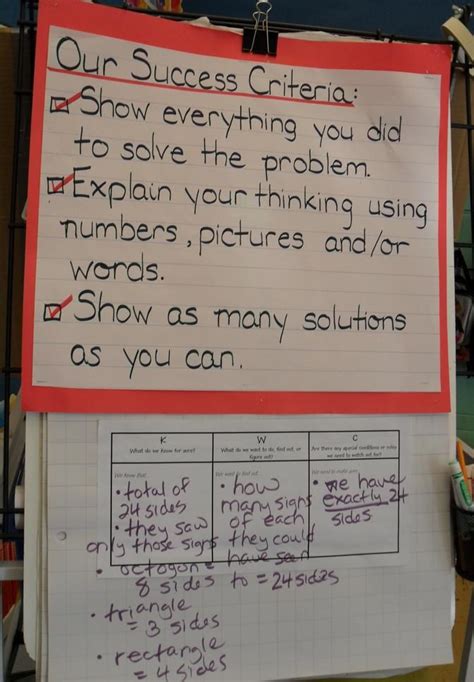 Our Success Criteria:
Show everything you did
to solve the problem.
Explain your thinking using
numbers, pictures and/or
words.
Show as many solutions
as you can.
K
What do we know for sure?
We know that:
• total of
24 sides
• they saw
only those signs
• octogon =
8 sides
• triangle
= 3 sides
• rectangle
= 4 sides
W
What do we want to do, find out, or
figure out?
We want to find out:
• how
many signs
of each
they could
have seen
to = 24 sides
C
Are there any special conditions or rules
we need to watch out for?
We need to make sure:
• we have
exactly 24
sides